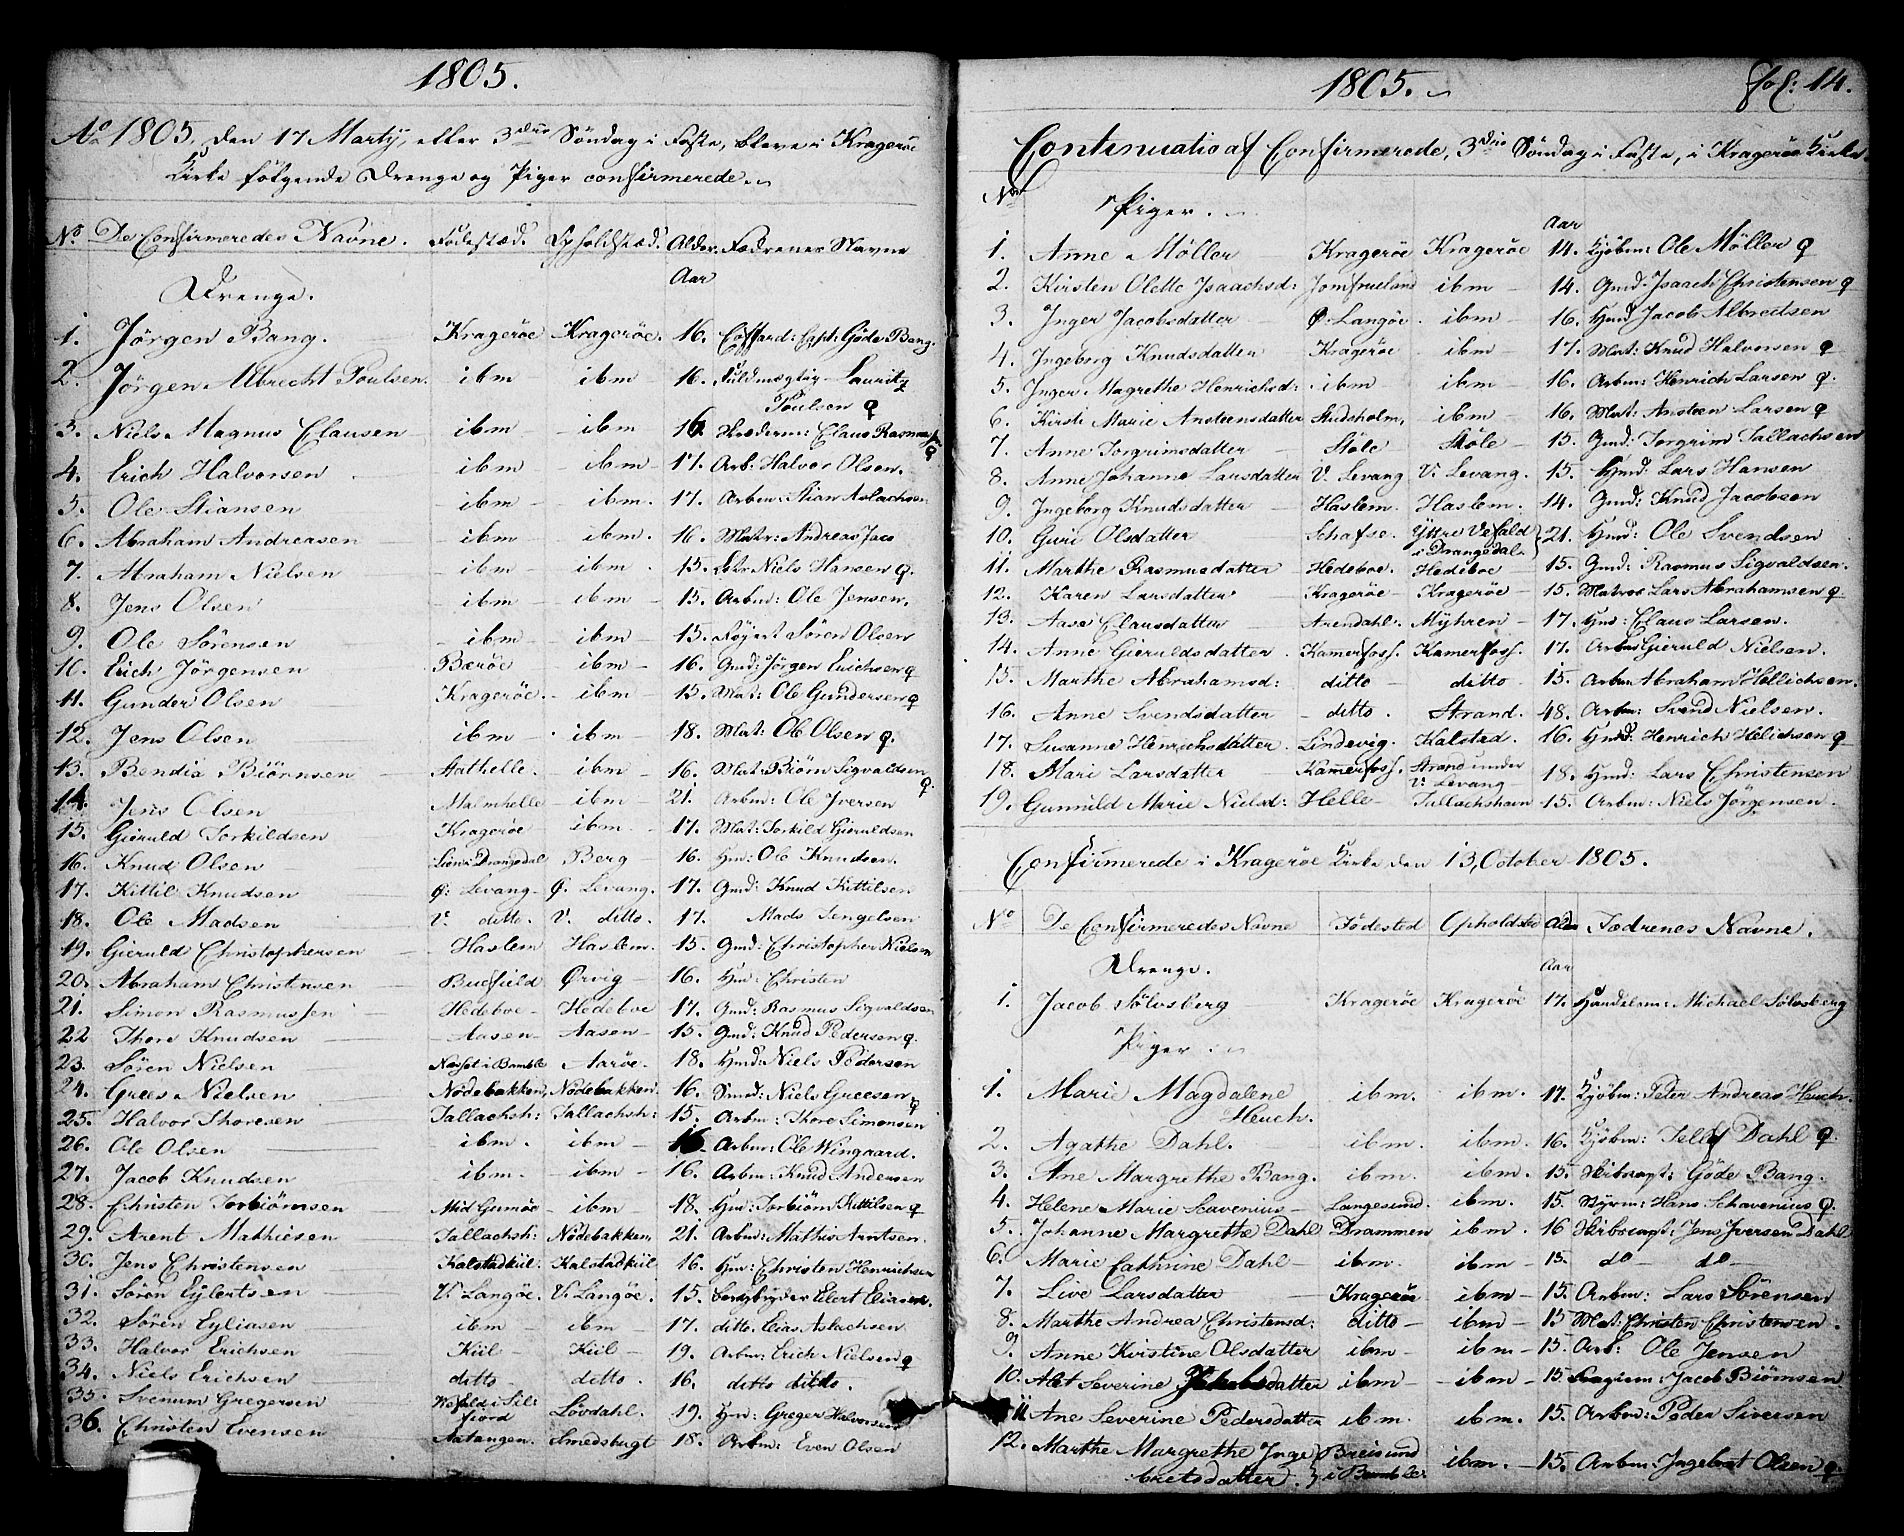 1805.
Ao 1805, den 17 Martij, eller 3die Söndag i Faste, bleve i Krageröe
Kirke fölgende Drenge og Piger confirmerede.
No De Confirmeredes Navne. Födestæd. Opholdstæd. Alder. Fædrenes Navne
Aar
Drenge.
1. Jörgen Bang. Krageröe Krageröe. 16. Coffard: Capt: Göde Bang.
2. Jörgen Albrecht Poulsen. ibm ibm 16. Fuldmægtig Lauritz
Poulsen
3. Niels Magnus Clausen ibm ibm 16. Skræderm: Claus Rasmussen
4. Erich Halvorsen ibm ibm 17. Arb: Halvor Olsen.
5. Ole Stiansen ibm ibm. 17. Arbm: Stian Aslachsen
6. Abraham Andreasen ibm ibm. 16. Matr: Andreas Jaco
7. Abraham Nielsen ibm ibm. 15. Niels Hansen
8. Jens Olsen ibm ibm 15. Arbm: Ole Jensen.
9. Ole Sörensen ibm ibm 15. Sören Olsen
10. Erich Jörgensen Beröe ibm 16. Gmd: Jörgen Erichsen
11. Gunder Olsen Krageröe. ibm 15. Mat: Ole Gundersen
12. Jens Olsen ibm ibm 18. Mat: Ole Olsen
13. Bendix Biörnsen Stathelle. ibm 16. Mat: Biörn Sigvaldsen
14. Jens Olsen Malmhelle ibm 21. Arbm: Ole Iversen
15. Gieruld Torkildsen Krageröe ibm. 17. Mat: Torkild Gieruldsen
16. Knud Olsen Drangedal Berg 16. Hm: Ole Knudsen.
17. Kittil Knudsen Ö. Levang Ö. Levang. 17. Gmd: Knud Kittilsen
18. Ole Madsen V. ditto. V. ditto. 17. Mads Tengelsen
19. Gieruld Christophersen Haslem Haslem. 15. Gmd: Christopher Nielsen
20. Abraham Christensen Buefield Örvig 16. Hm: Christen
21. Simon Rasmussen Hedeboe Hedeboe 17. Gmd: Rasmus Sigvaldsen
22 Thore Knudsen Aasen Aasen 15. Gmd: Knud Pedersen
23. Sören Nielsen Næsset i Bamble Aaröe. 18. Hmd: Niels Pedersen
24. Grees Nielsen Nödebakken, Nödebakken. 16. Niels Greesen
25. Halvor Thoresen Tallachsh: Tallachsh: 15. Arbm: Thore Simonsen
26. Ole Olsen ibm. ibm 16 Arbm: Ole Wingaard.
27. Jacob Knudsen ibm. ibm 16. Arbm: Knud Andersen
28. Christen Torbiörnsen Mid Gumöe ibm 18. Hm: Torbiörn Kittilsen
29. Arent Mathiesen Tallachsh: Nödebakken 21. Arbm: Mathis Arntsen.
30. Jens Christensen Kalstadkiil Kalstadkiil 16. Hm: Christen Henrichsen
31. Sören Eylertsen V. Langöe. V. Langöe. 15. Eilert Eliasen.
32. Sören Eyliasen ibm ibm 17. ditto. Elias Aslachsen
33. Halvor Erichsen Kiil Kiil 19. Arbm: Erich Nielsen
34. Niels Erichsen ditto ditto. 16. ditto ditto.
35. Svenum Gregersen Wefald i Sil-
fiord Lövdahl. 19. Hm: Greger Halvorsen
36. Christen Evensen Aatangen. Smedsbugt 18. Arbm: Even Olsen
1805. fol: 14.
Continuatio af Confirmerede, 3die Söndag i Faste, i Krageröe Kirke
No
Piger.
Aar
1. Anne Möller Krageröe Krageröe 14. Kjöbm: Ole Möller
2. Kirsten Olette Isaachsd: Jomfrueland ibm 14. Gmd: Isaach Christensen
3. Inger Jacobsdatter Ö. Langöe. ibm 16. Hmd Jacob Albretsen
4. Ingeborg Knudsdatter Krageröe ibm 17. Mat: Knud Halvorsen
5. Inger Magrethe Henrichsd: ibm ibm 16. Arbm: Henrich Larsen
6. Kirsti Marie Ansteensdatter Studsholm, ibm 16. Mat: Ansteen Larsen
7. Anne Torgrimsdatter Stöle Stöle 15. Gmd: Torgrim Tallachsen
8. Anne Johanne Larsdatter V. Levang V. Levang. 15. Hmd: Lars Hansen
9. Ingeborg Knudsdatter Haslem. Haslem. 14. Gmd: Knud Jacobsen
10. Guri Olsdatter Schafse. Yttre Vefald
i Drangedal 21. Hmd: Ole Svendsen
11. Marthe Rasmusdatter Hedeboe. Hedeboe 15. Gmd: Rasmus Sigvaldsen.
12. Karen Larsdatter Krageröe Krageröe 15. Matros Lars Abrahamsen
13. Aase Clausdatter Arendahl. Myhren 17. Hm: Claus Larsen.
14. Anne Gieruldsdatter Kamerfoss. Kamerfoss. 17. Arbm Gieruld Nielsen.
15. Marthe Abrahamsd: ditto ditto 15. Arbm Abraham Hellichsen.
16. Anne Svendsdatter ditto. Strand. 48. Arbm: Svend Nielsen.
17. Susanne Henrichsdatter Lindevig. Kalstad. 16. Hmd: Henrich Helichsen
18. Mari Larsdatter Kammerfoss. Strand under
V. Levang 18. Hmd: Lars Christensen
19. Gunnild Marie Nielsd: Helle Tallachshavn 15. Arbm: Niels Jörgensen.
Confirmerede i Krageröe Kirke den 13, October 1805.
No De Confirmeredes Navne Födested Opholdsted Alder Fædrenes Navne.
Aar
Drenge.
1. Jacob Sölvsberg Krageröe Krageröe 17. Handelsm: Michael Sölvsberg
Piger
1. Marie Magdalene
Heuch. ibm. ibm. 17. Kjöbm: Peter Andreas Heuch.
2. Agathe Dahl. ibm. ibm. 16. Kjöbm: Tellef Dahl
3. Ane Margrethe Bang. ibm. ibm. 15. Skibscapt: Göde Bang.
4. Helene Marie Scavenius Langesund. ibm. 15. Byrm: Hans Schavenius
5. Johanne Margrethe Dahl Drammen ibm. 16 Skibscapt: Jens Iversen Dahl
6. Marie Cathrine Dahl ibm. ibm. 15. do do
7. Live Larsdatter Krageröe ibm 15. Arbm: Lars Sörensen
8. Marthe Andrea Christensd: ditto ibm 15 Mat: Christen Christensen.
9. Anne Kristine Olsdatter ibm ibm 15. Arb: Ole Jensen
10. Alet Severine Jakobsdatter ibm ibm 15. Jacob Biörnsen.
11 Ane Severine Pedersdatter ibm. ibm. 15. Arbm: Peder Siversen
12. Marthe Margrethe Inge-
bretsdatter. Breisund
i Bamble. ibm. 15. Arbm: Ingebret Olsen